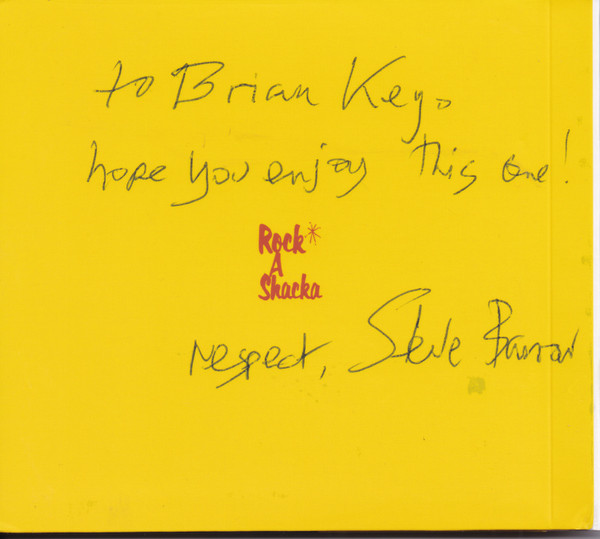 to Brian Keyo
hope you enjoy this one!
Rock*
A
Shacka
respect, Steve Barrow